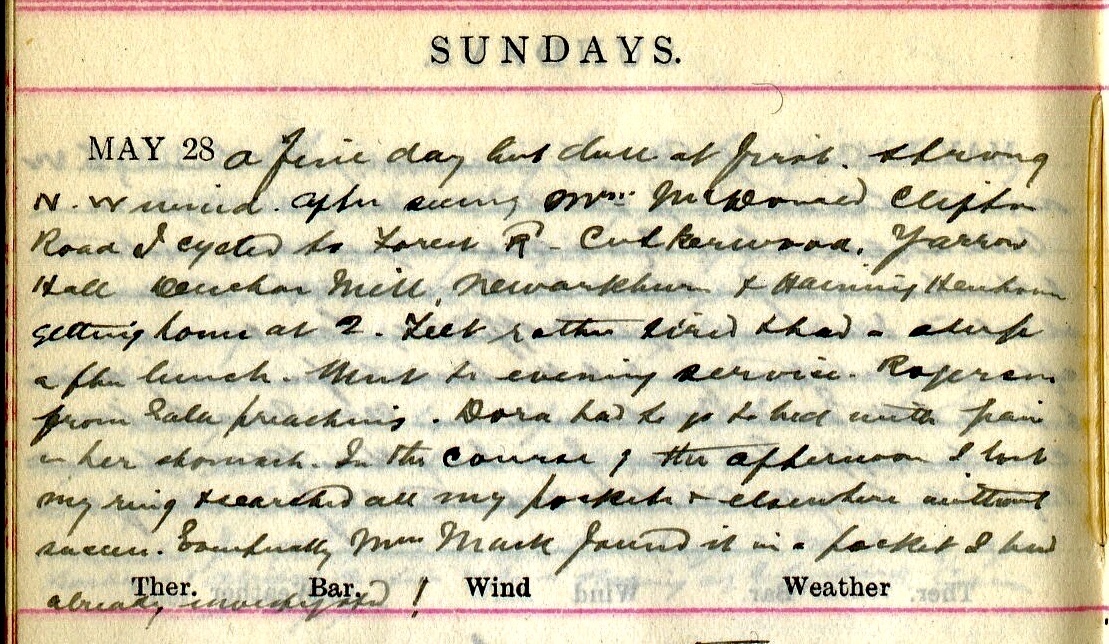 SUNDAYS.
MAY 28 a fine day but dull at first. Strong
N.W wind. After seeing Mrs. McDonald Clifton
Road I cycled to Forest Rd - Cutkerwood, Yarrow
Hall Deuchar Mill, Newarkburn & Haining Henhouse
getting home at 2. Felt rather tired & had a sleep
after lunch. Went to evening service. Rogerson
from Gala preaching. Dora had to go to bed with pain
in her stomach. In the course of the afternoon I lost
my ring & searched all my pockets & elsewhere without
success. Eventually Mrs Mack found it in a pocket I had
already investigated !
Ther. Bar. Wind Weather